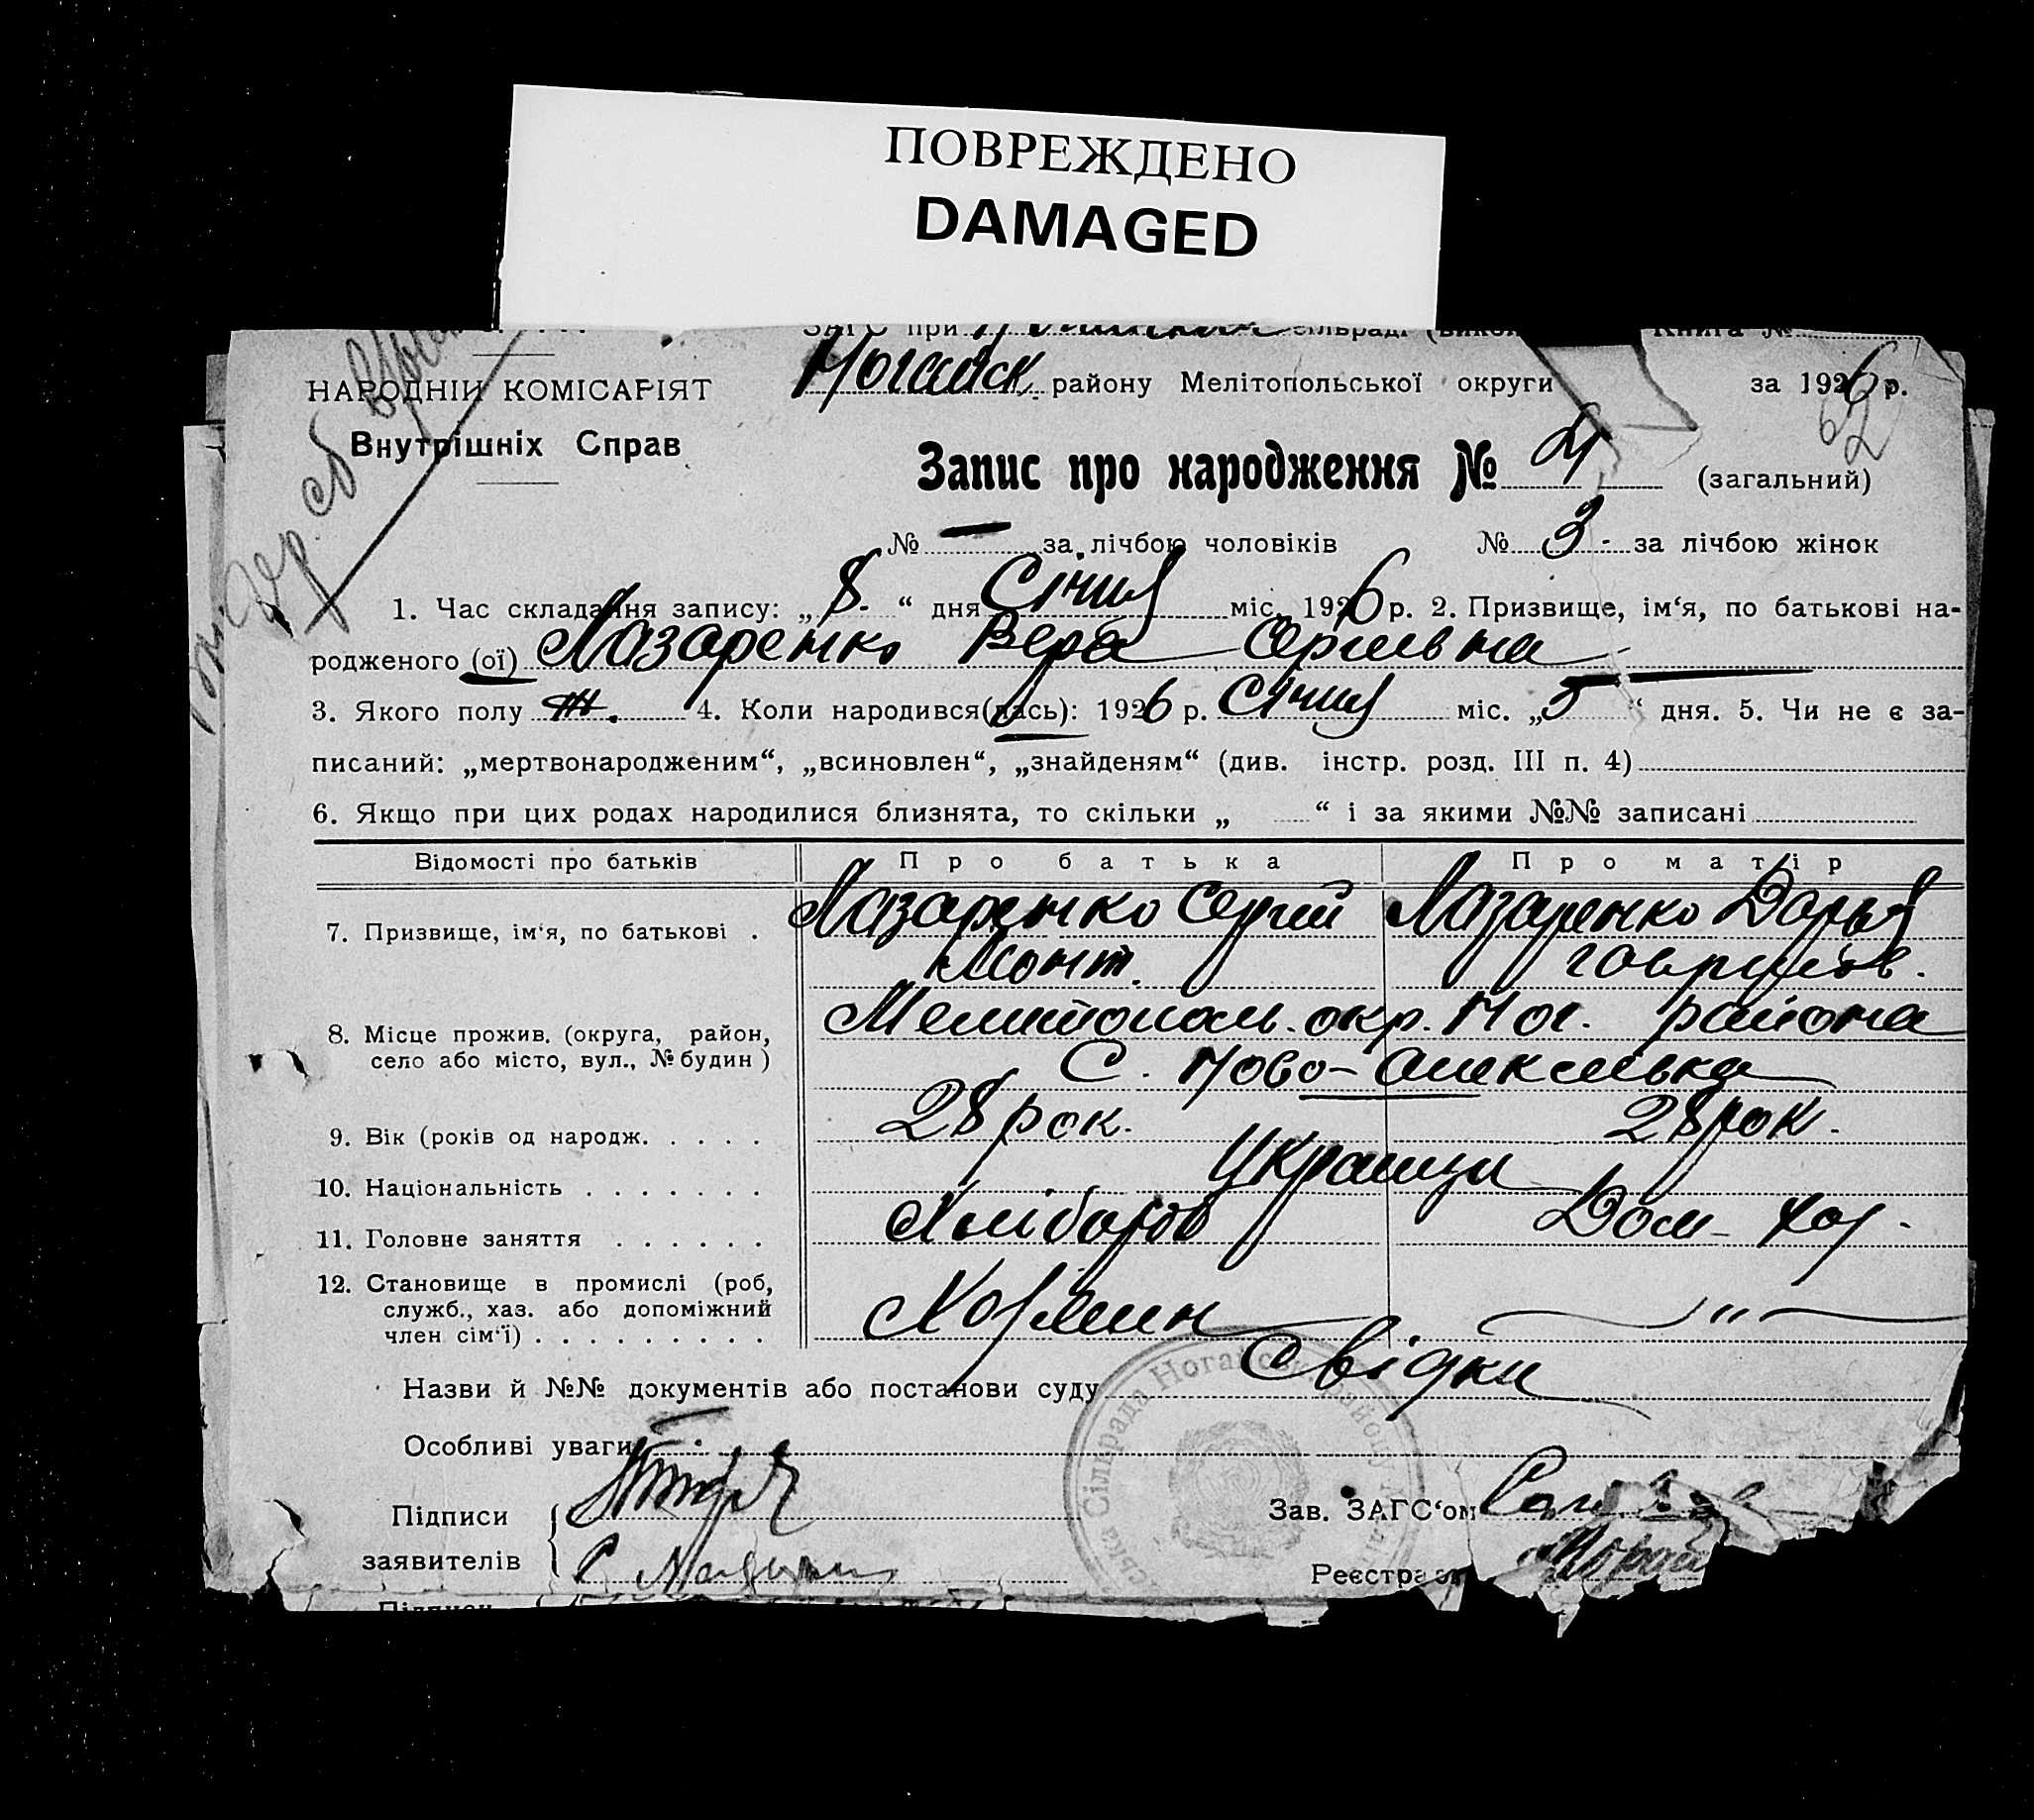 ПОВРЕЖДЕНО
DAMAGED
ЗАГС при сільраді Книга №
НАРОДНІЙ КОМІСАРІЯТ
Внутрішніх Справ
Ногайск. району Мелітопольської округи за 1926 р.
62
Запис про народження № 4 (загальний)
№ — за лічбою чоловіків № 3 за лічбою жінок
1. Час складання запису: „ 8. “ дня Січня міс. 1926 р. 2. Призвище, ім‘я, по батькові на-
родженого (ої) Лазаренко Вера Сергиевна
3. Якого полу ж. 4. Коли народився(лась): 1926 р. Січня міс. „ 5 “ дня. 5. Чи не є за-
писаний: „мертвонародженим“, „всиновлен“, „знайденям“ (див. інстр. розд. III п. 4)
6. Якщо при цих родах народилися близнята, то скільки „ “ і за якими №№ записані
Відомості про батьків Про батька Про матір
7. Призвище, ім‘я, по батькові . Лазаренко Сергий Лазаренко Дарья
8. Місце прожив. (округа, район, село або місто, вул., № будин ) Мелитополь. окр. Ног. района
С. Ново-Алексеевка
9. Вік (років од народж. . . . . 28 рок. 28 рок.
10. Національність . . . . . . . Украинци
11. Головне заняття . . . . . . Хлібороб Дом-хоз.
12. Становище в промислі (роб,
служб., хаз. або допоміжний
член сім‘ї) . . . . . . . . . Хозяин — " —
Назви й №№ документів або постанови суду Свідки
Особливі уваги
Підписи
заявителів
Зав. ЗАГС‘ом
Реєстра
Підписи
Сільрада Ногайськ району